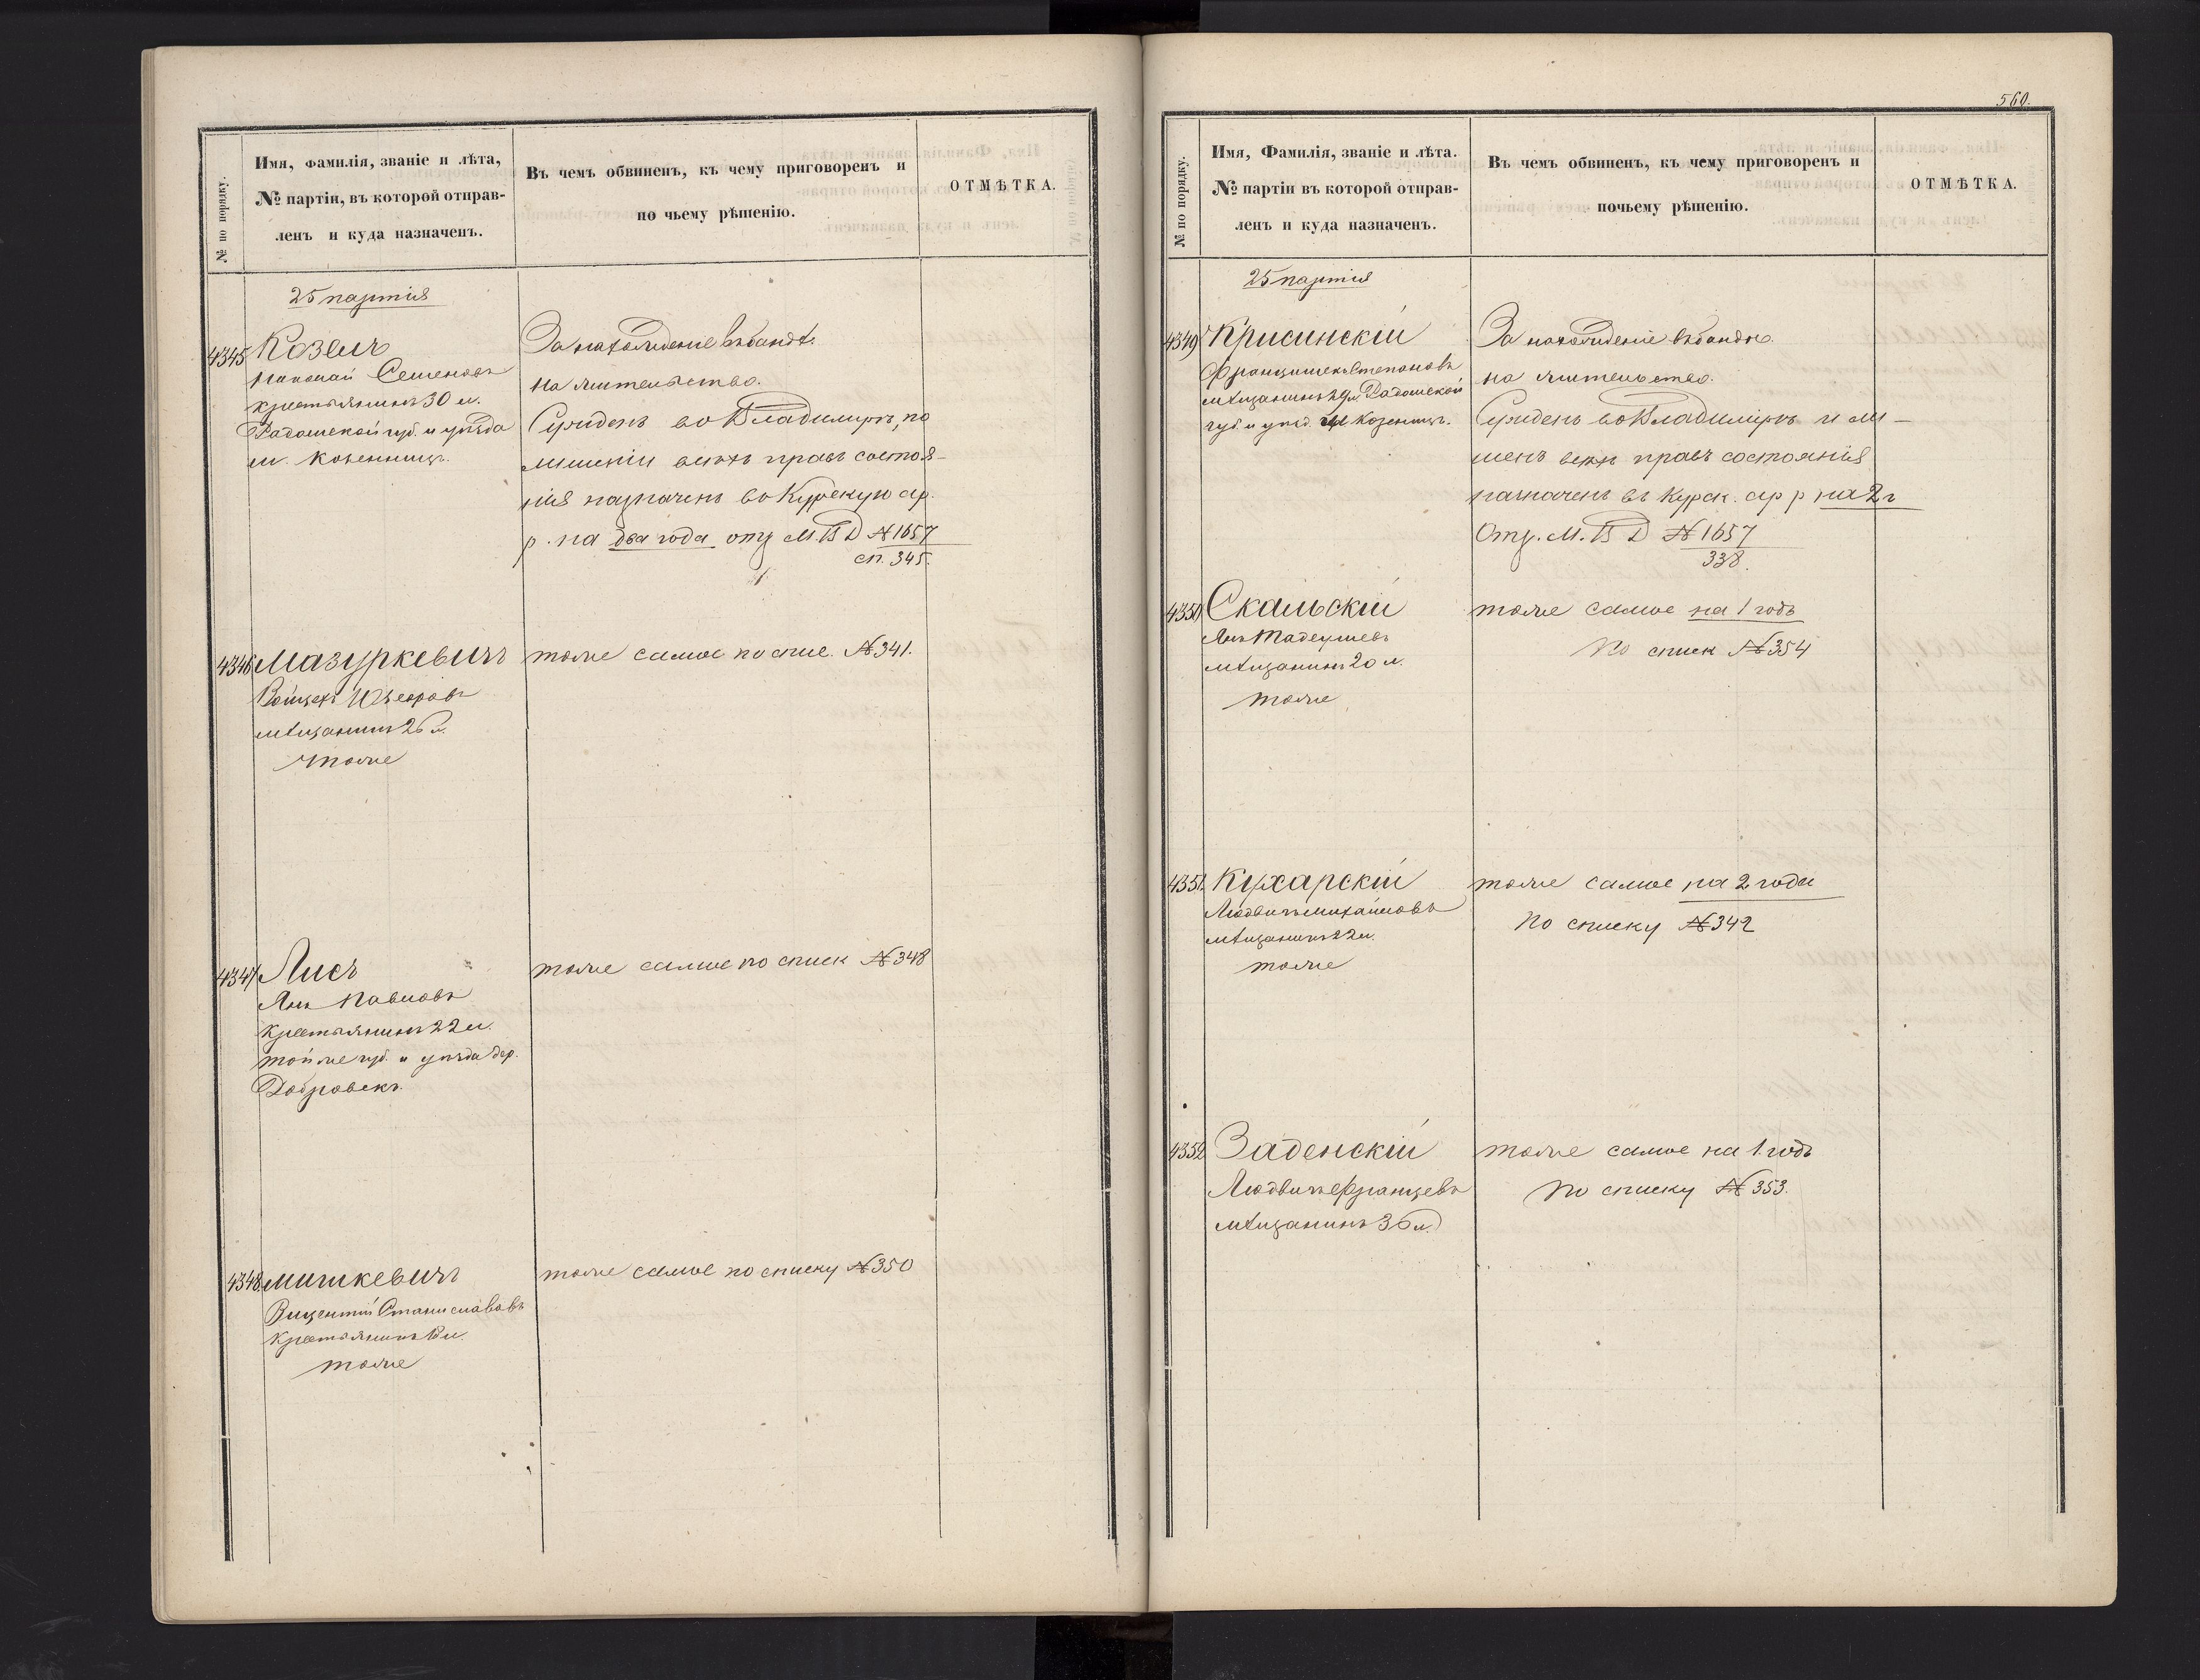 № по порядку.
Имя, фамилія, званіе и лѣта,
№ партіи, въ которой отправ-
ленъ и куда назначенъ.
Въ чемъ обвиненъ, къ чему приговоренъ и
по чьему рѣшенію.
ОТМѢТКА.
25 партія
4345
Козелъ
Семеновъ
крестьянинъ 30 л.
Радомской губ. и уѣзда
м. Козенницъ.
За нахожденіе въ бандѣ.
на жительство.
Сужденъ во Владимірѣ, по
лишеніи всѣхъ правъ состоя-
нія назначенъ въ Курскую ар.
р. на два года отр М. В D № 1657
сп. 345.
4346
Мазуркевичъ
Войцехъ Юзефовъ
мѣщанинъ 26 л.
тоже
тоже самое по спис. № 341.
4347
Лисъ
Янъ Павловъ
крестьянинъ 22 л.
той же губ. и уѣзда дер.
Добровскъ.
тоже самое по списк № 348
4348
Мишкевичъ
Вицентій Станиславовъ
крестьянинъ л.
тоже
тоже самое по списку № 350
560.
№ по порядку.
Имя, Фамилія, званіе и лѣта.
№ партіи въ которой отправ-
ленъ и куда назначенъ.
Въ чемъ обвиненъ, къ чему приговоренъ и
почьему рѣшенію.
ОТМѢТКА.
25 партія
4349
Крисинскій
Францишекъ Степановъ
мѣщанинъ 29 л. Радомской
губ. и уѣзд. м Козеницъ.
За нахожденіе въ бандѣ.
на жительство.
Сужденъ во Владимірѣ и ли-
шенъ всѣхъ правъ состоянія
назначенъ въ Курск. ар р на 2 г
Отр. М. В D № 1657
338.
4350
Скальскій
Янъ Тадеушевъ
мѣщанинъ 20 л.
тоже
тоже самое на 1 годъ
По списк № 354
4351.
Кухарскій
Людвигъ Михайловъ
мѣщанинъ 22 л.
тоже
тоже самое на 2 года
По списку № 342
4352
Заденскій
Людвигъ Францевъ
мѣщанинъ 36 л.
тоже самое на 1 годъ
По списку № 353.